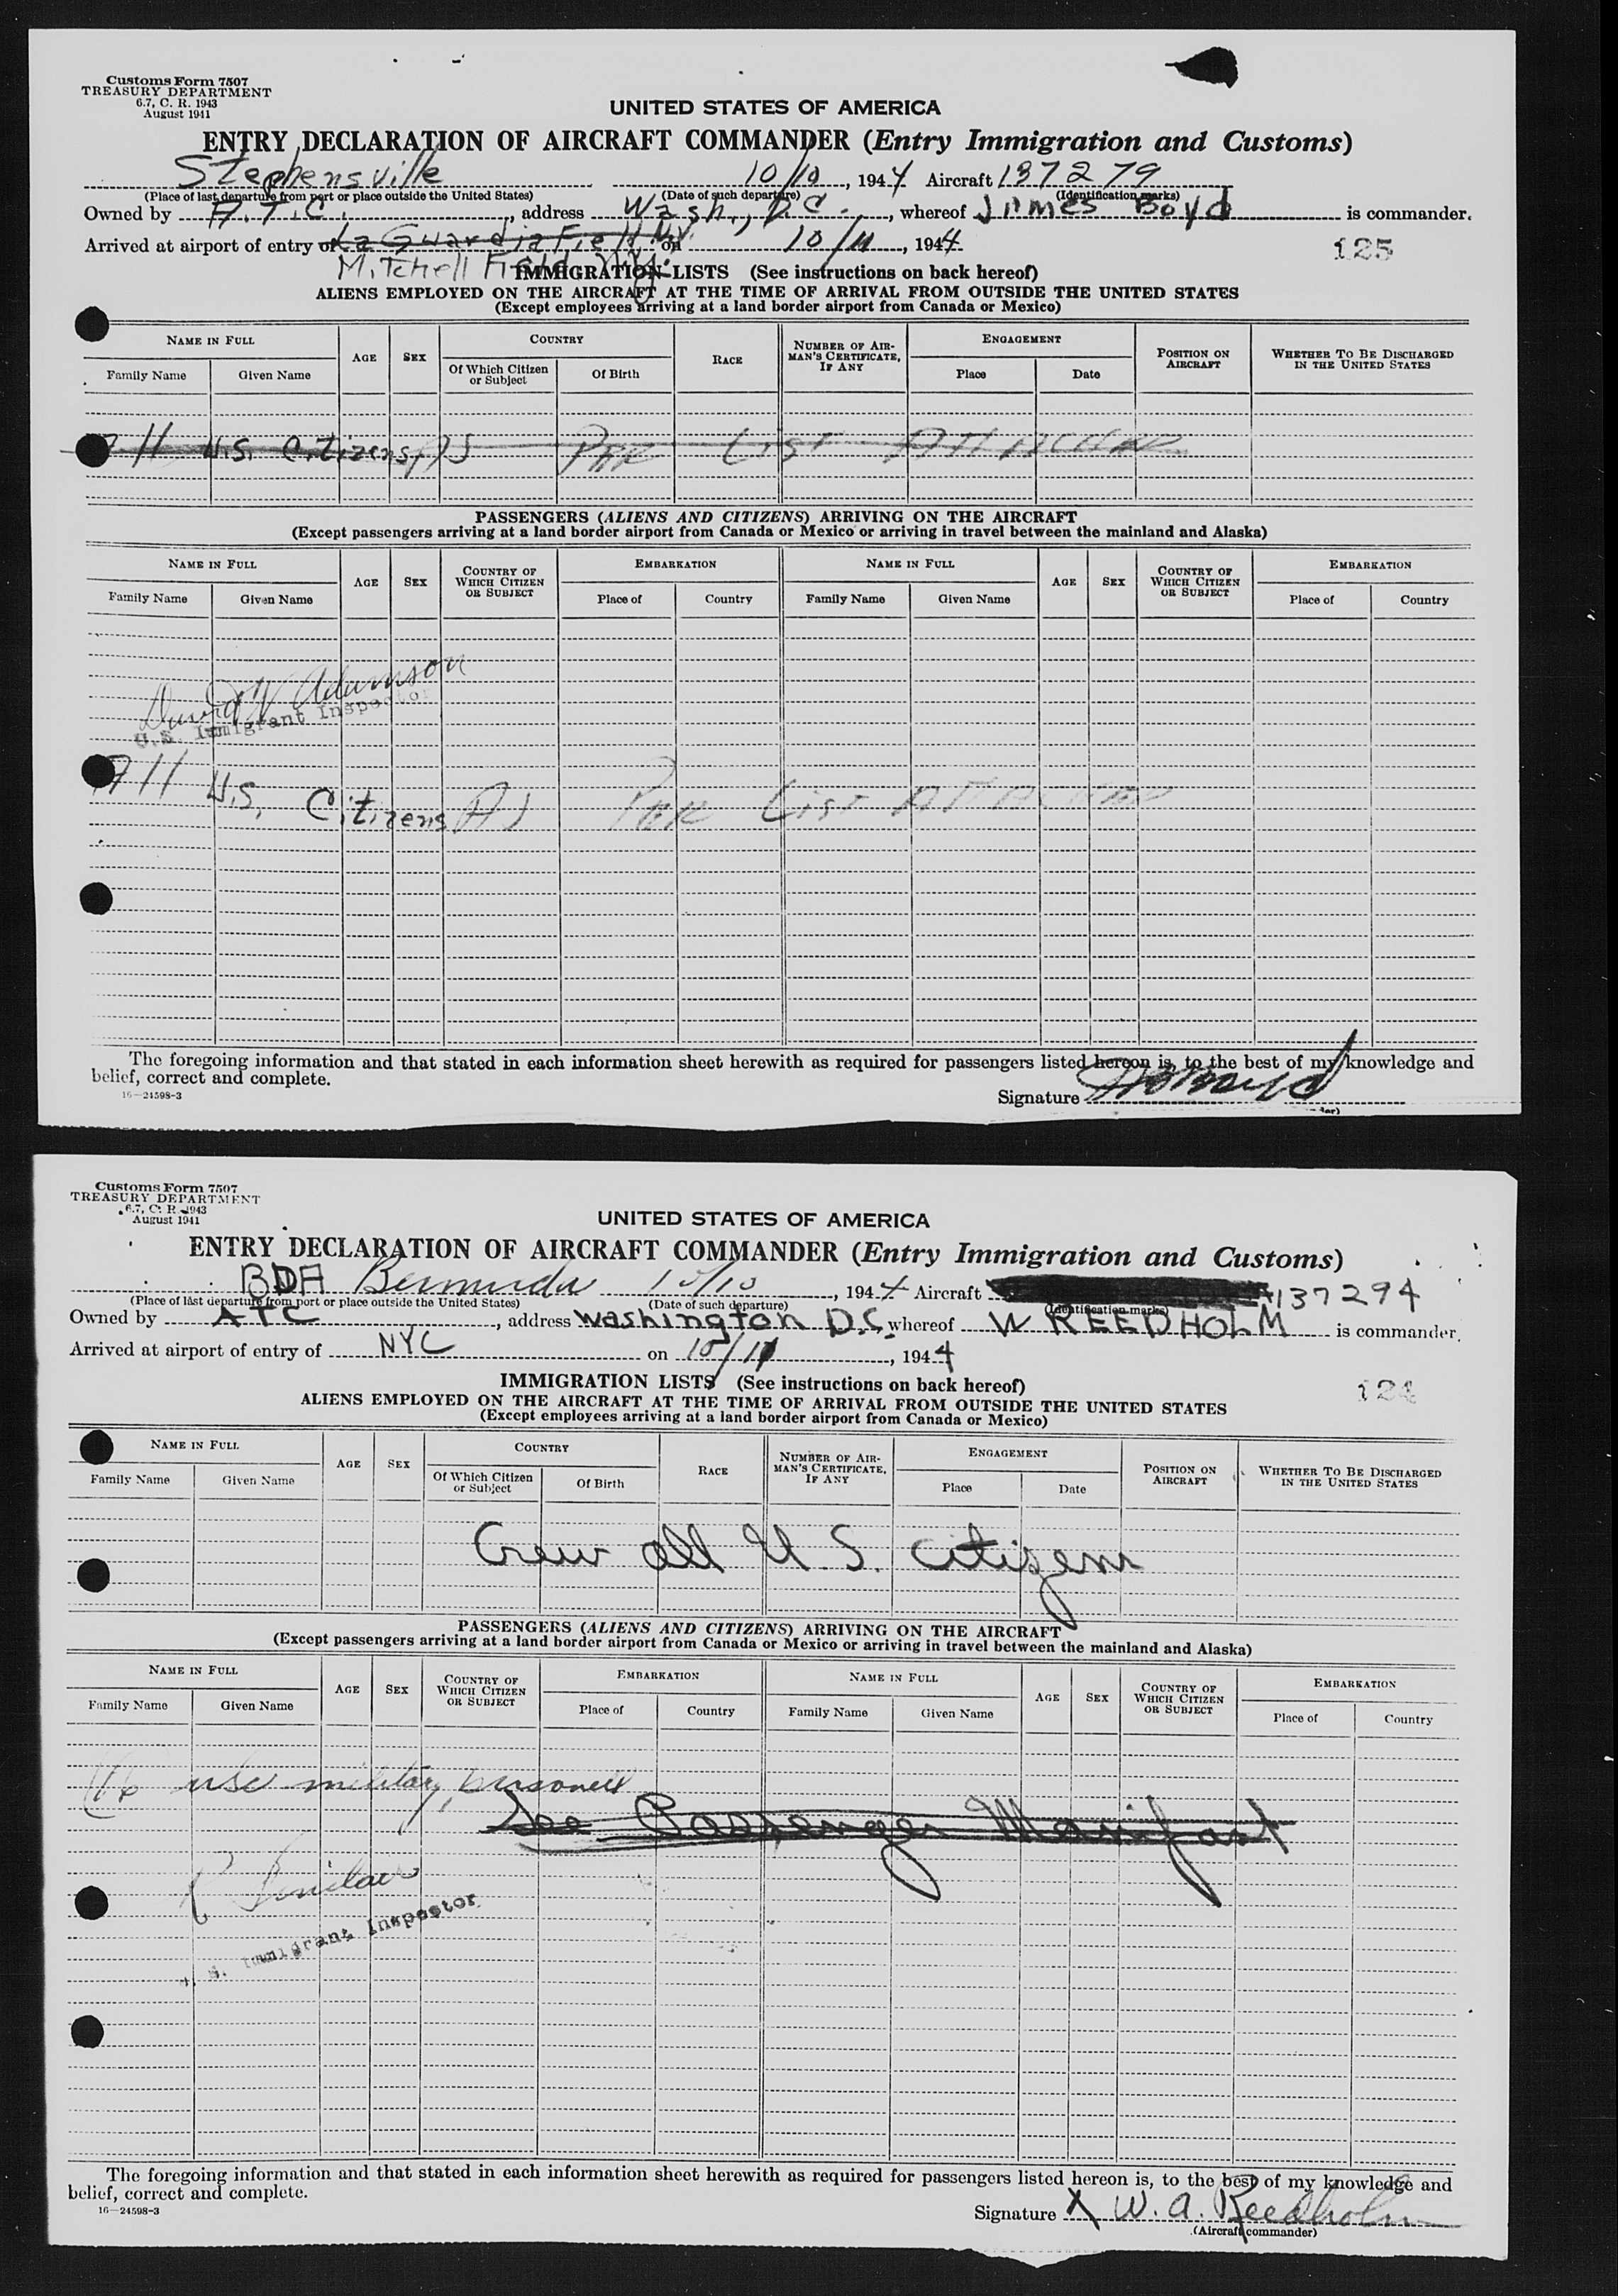 Customs Form 7507
TREASURY DEPARTMENT
6.7, C. R. 1943
August 1941
UNITED STATES OF AMERICA
ENTRY DECLARATION OF AIRCRAFT COMMANDER (Entry Immigration and Customs)
Stephensville 10/10, 1944 Aircraft 137279
(Place of last departure from port or place outside the United States) (Date of such departure) (Identification marks)
Owned by A.T.C., address Wash., D.C., whereof James Boyd is commander.
Arrived at airport of entry of La Guardia Field N.Y. on 10/11, 1944
125
Mitchell Field N.Y.
IMMIGRATION LISTS (See instructions on back hereof)
ALIENS EMPLOYED ON THE AIRCRAFT AT THE TIME OF ARRIVAL FROM OUTSIDE THE UNITED STATES
(Except employees arriving at a land border airport from Canada or Mexico)
NAME IN FULL AGE SEX COUNTRY RACE NUMBER OF AIRMAN'S CERTIFICATE, IF ANY ENGAGEMENT POSITION ON AIRCRAFT WHETHER TO BE DISCHARGED IN THE UNITED STATES
Family Name Given Name Of Which Citizen or Subject Of Birth Place Date
11 U.S. Citizens, AS PER LIST ATTACHED
PASSENGERS (ALIENS AND CITIZENS) ARRIVING ON THE AIRCRAFT
(Except passengers arriving at a land border airport from Canada or Mexico or arriving in travel between the mainland and Alaska)
NAME IN FULL AGE SEX COUNTRY OF WHICH CITIZEN OR SUBJECT EMBARKATION NAME IN FULL AGE SEX COUNTRY OF WHICH CITIZEN OR SUBJECT EMBARKATION
Family Name Given Name Place of Country Family Name Given Name Place of Country
David W Adamson
U.S. Immigrant Inspector
11 U.S. Citizens AS PER LIST ATTACHED
The foregoing information and that stated in each information sheet herewith as required for passengers listed hereon is, to the best of my knowledge and
belief, correct and complete.
16—24598-3
Signature
Customs Form 7507
TREASURY DEPARTMENT
6.7, C. R. 1943
August 1941
UNITED STATES OF AMERICA
ENTRY DECLARATION OF AIRCRAFT COMMANDER (Entry Immigration and Customs)
BDA Bermuda 10/10, 1944 Aircraft 137294
(Place of last departure from port or place outside the United States) (Date of such departure) (Identification marks)
Owned by ATC, address Washington D.C. whereof W REEDHOLM is commander.
Arrived at airport of entry of NYC on 10/11, 1944
IMMIGRATION LISTS (See instructions on back hereof)
124
ALIENS EMPLOYED ON THE AIRCRAFT AT THE TIME OF ARRIVAL FROM OUTSIDE THE UNITED STATES
(Except employees arriving at a land border airport from Canada or Mexico)
NAME IN FULL AGE SEX COUNTRY RACE NUMBER OF AIRMAN'S CERTIFICATE, IF ANY ENGAGEMENT POSITION ON AIRCRAFT WHETHER TO BE DISCHARGED IN THE UNITED STATES
Family Name Given Name Of Which Citizen or Subject Of Birth Place Date
Crew all U.S. citizens
PASSENGERS (ALIENS AND CITIZENS) ARRIVING ON THE AIRCRAFT
(Except passengers arriving at a land border airport from Canada or Mexico or arriving in travel between the mainland and Alaska)
NAME IN FULL AGE SEX COUNTRY OF WHICH CITIZEN OR SUBJECT EMBARKATION NAME IN FULL AGE SEX COUNTRY OF WHICH CITIZEN OR SUBJECT EMBARKATION
Family Name Given Name Place of Country Family Name Given Name Place of Country
16 usc military personell
See Passenger Manifest
Sinclair
U. S. Immigrant Inspector
The foregoing information and that stated in each information sheet herewith as required for passengers listed hereon is, to the best of my knowledge and
belief, correct and complete.
16—24598-3
Signature X W. A. Reedholm
(Aircraft commander)